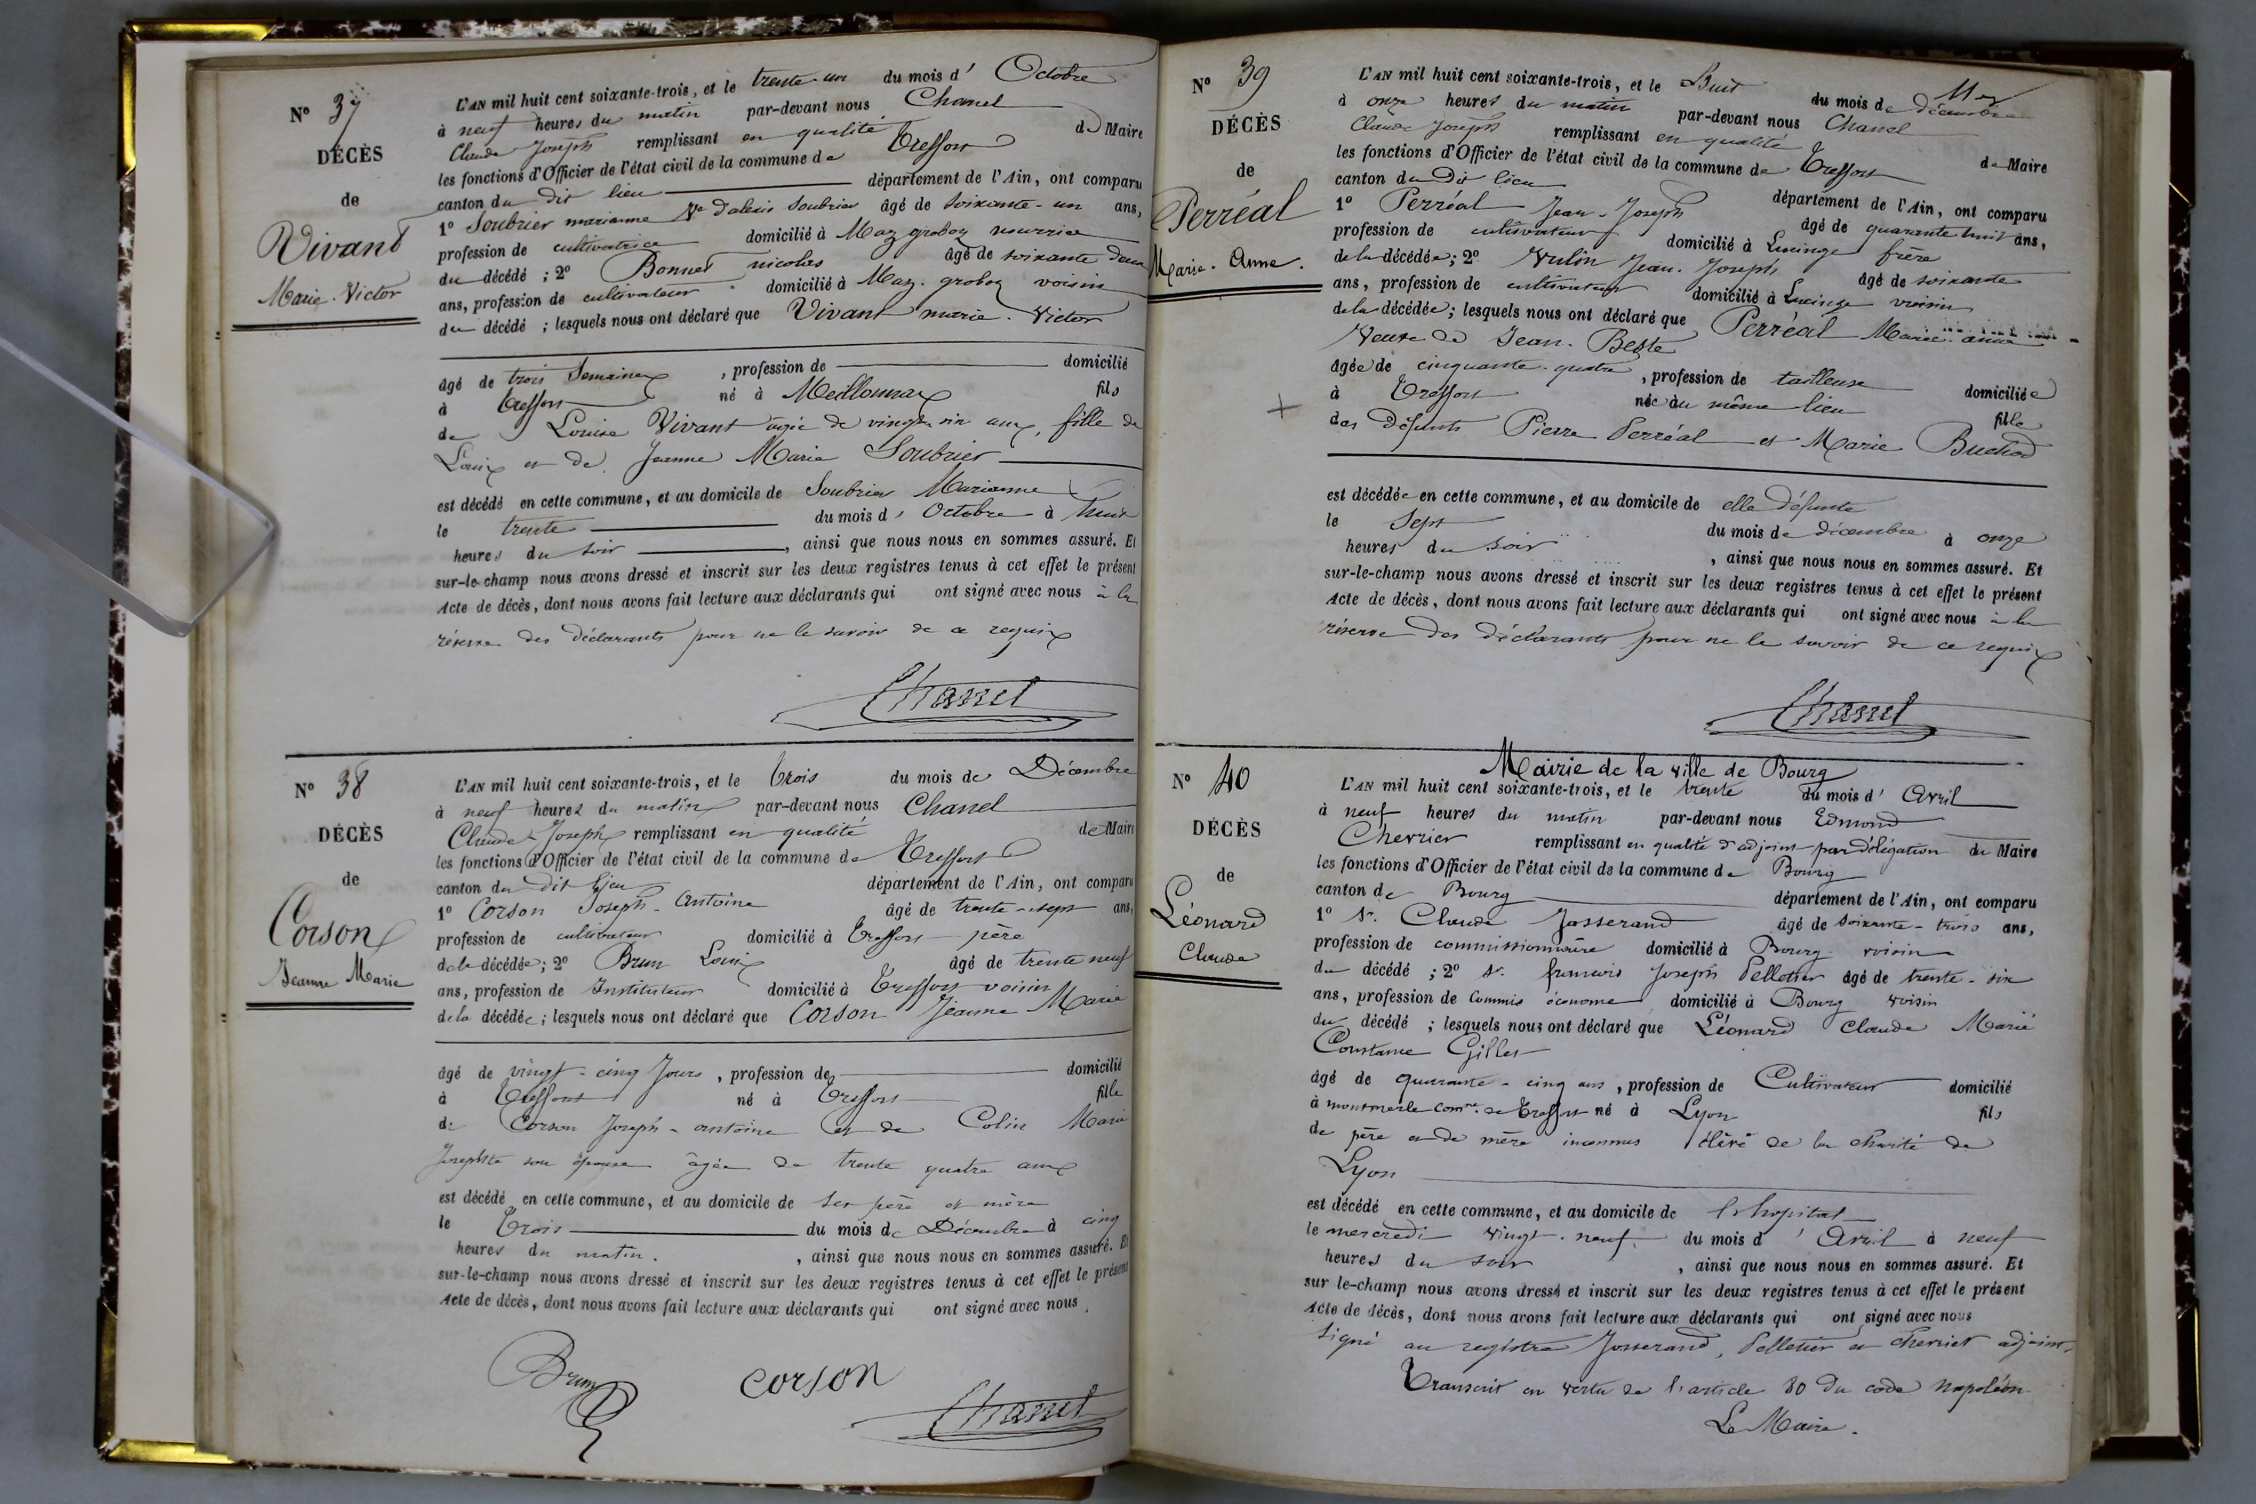 N° 37
DÉCÈS
de
Vivant
Marie-Victor
L'AN mil huit cent soixante-trois, et le trente-un du mois d' Octobre
à neuf heures du matin par-devant nous Chanel
Claude Joseph remplissant en qualité de Maire
les fonctions d'Officier de l'état civil de la commune de Treffort
canton du dit lieu département de l'Ain, ont comparu
1° Soubrier marianne Ve d'alexis Soubrier âgé de soixante-un ans,
profession de cultivatrice domicilié à Maz groboz nourrice
du décédé ; 2° Bonnet nicolas âgé de soixante deux
ans, profession de cultivateur domicilié à Maz. groboz voisin
du décédé ; lesquels nous ont déclaré que Vivant marie. Victor
âgé de trois Semaines , profession de domicilié
à Treffort né à Meillonnaz fils
de Louise Vivant âgée de vingt-six ans, fille de
Louis et de Jeanne Marie Soubrier
est décédé en cette commune, et au domicile de Soubrier Marianne
le trente du mois d' Octobre à huit
heures du soir , ainsi que nous nous en sommes assuré. Et
sur-le-champ nous avons dressé et inscrit sur les deux registres tenus à cet effet le présent
Acte de décès, dont nous avons fait lecture aux déclarants qui ont signé avec nous à la
réserve des déclarants pour ne le savoir de ce requis
Chanel
N° 38
DÉCÈS
de
Corson
Jeanne Marie
L'AN mil huit cent soixante-trois, et le Trois du mois de Décembre
à neuf heures du matin par-devant nous Chanel
Claude Joseph remplissant en qualité de Maire
les fonctions d'Officier de l'état civil de la commune de Treffort
canton du dit lieu département de l'Ain, ont comparu
1° Corson Joseph-Antoine âgé de trente-sept ans,
profession de cultivateur domicilié à Treffort père
de la décédée ; 2° Brun Louis âgé de trente neuf
ans, profession de Instituteur domicilié à Treffort voisin
de la décédée ; lesquels nous ont déclaré que Corson Jeanne Marie
âgé de vingt-cinq Jours , profession de domicilié
à Treffort né à Treffort fille
de Corson Joseph-antoine et de Colin Marie
Josephte son épouse âgée de trente quatre ans
est décédé en cette commune, et au domicile de ses père et mère
le Trois du mois de Décembre à cinq
heures du matin. , ainsi que nous nous en sommes assuré. Et
sur-le-champ nous avons dressé et inscrit sur les deux registres tenus à cet effet le présent
Acte de décès, dont nous avons fait lecture aux déclarants qui ont signé avec nous.
Brun corson
Chanel
N° 39
DÉCÈS
de
Perréal
Marie-Anne.
L'AN mil huit cent soixante-trois, et le huit du mois de décembre
à onze heures du matin par-devant nous Chanel
Claude Joseph remplissant en qualité de Maire
les fonctions d'Officier de l'état civil de la commune de Treffort
canton du Dit lieu département de l'Ain, ont comparu
1° Perréal Jean-Joseph âgé de quarante huit ans,
profession de cultivateur domicilié à Lucinge frère
de la décédée ; 2° Vulin Jean-Joseph âgé de soixante
ans, profession de cultivateur domicilié à Lucinge voisin
de la décédée ; lesquels nous ont déclaré que Perréal Marie-anne
Veuve de Jean. Beste
âgée de cinquante-quatre , profession de tailleuse domiciliée
à Treffort née au même lieu fille
des Défunts Pierre Perréal et Marie Buchod
est décédée en cette commune, et au domicile de elle défunte
le Sept du mois de décembre à onze
heures du soir , ainsi que nous nous en sommes assuré. Et
sur-le-champ nous avons dressé et inscrit sur les deux registres tenus à cet effet le présent
Acte de décès, dont nous avons fait lecture aux déclarants qui ont signé avec nous à la
réserve des déclarants pour ne le savoir de ce requis
Chanel
N° 40
DÉCÈS
de
Léonard
Claude
Mairie de la ville de Bourg
L'AN mil huit cent soixante-trois, et le trente du mois d' Avril
à neuf heures du matin par-devant nous Edmond
Chevrier remplissant en qualité d'adjoint par délégation du Maire
les fonctions d'Officier de l'état civil de la commune de Bourg
canton de Bourg département de l'Ain, ont comparu
1° Sr. Claude Josserand âgé de soixante-trois ans,
profession de commissionnaire domicilié à Bourg voisin
du décédé ; 2° Sr. francois Joseph Pelletier âgé de trente-six
ans, profession de Commis économe domicilié à Bourg voisin
du décédé ; lesquels nous ont déclaré que Léonard Claude Marié
Constance Gillet
âgé de quarante-cinq ans , profession de Cultivateur domicilié
à montmerle comne. de Treffort né à Lyon fils
de père et de mère inconnus élève de la charité de
Lyon
est décédé en cette commune, et au domicile de l'hopital
le mercredi vingt-neuf du mois d' Avril à neuf
heures du soir , ainsi que nous nous en sommes assuré. Et
sur le-champ nous avons dressé et inscrit sur les deux registres tenus à cet effet le présent
Acte de décès, dont nous avons fait lecture aux déclarants qui ont signé avec nous
Signé au registre Josserand, Pelletier et Chevrier adjoint.
Transcrit en vertu de l'article 80 du code Napoléon
Le Maire.